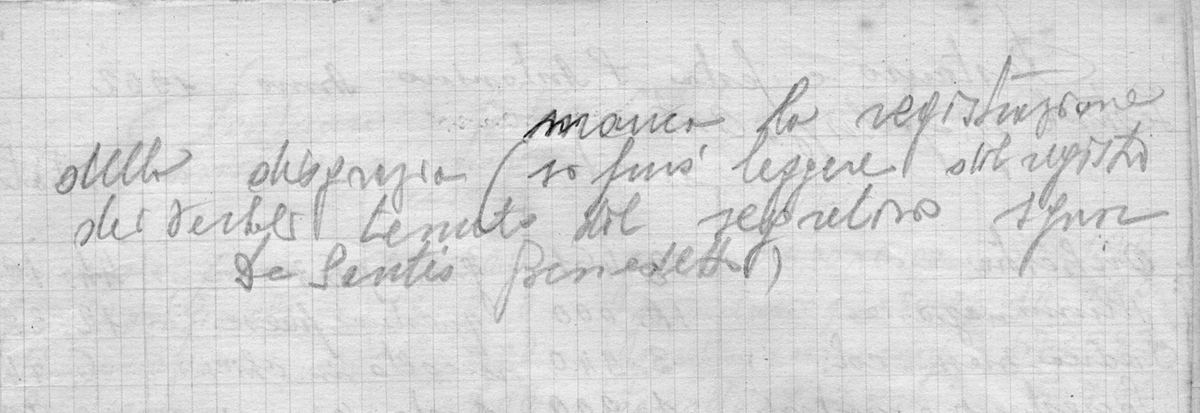 manca la registrazione
della disgrazia (si può leggere dal registro
dei verbali tenuto dal segretario signor
De Santis Benedetto)